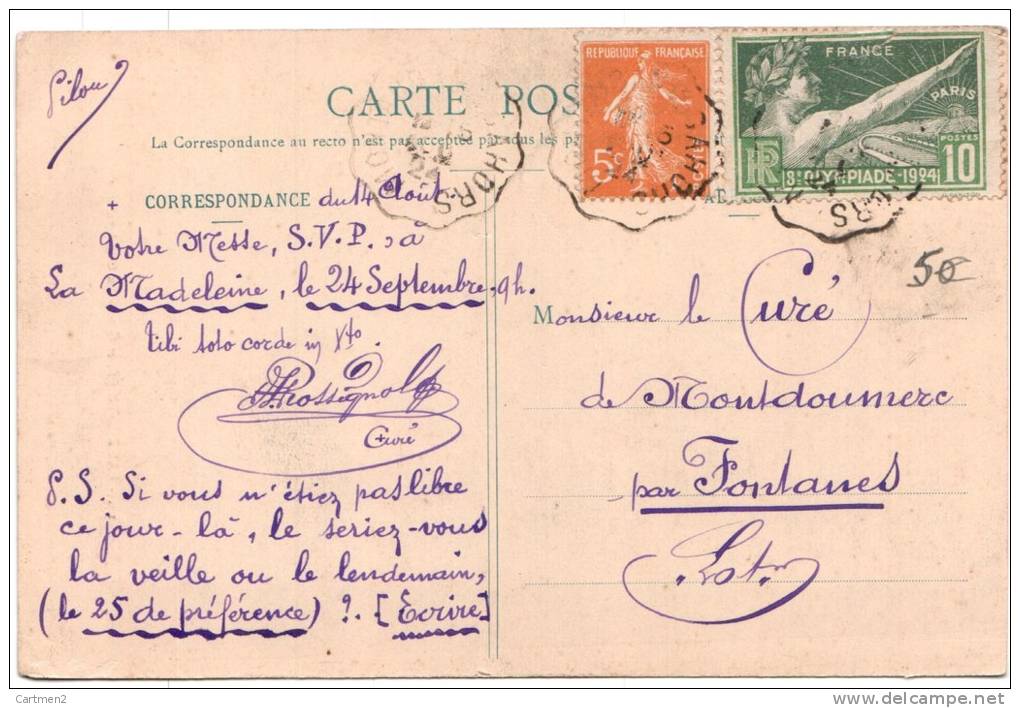 CARTE POS
La Correspondance au recto n'est pas acceptée par tous les pa
+ CORRESPONDANCE du 14 Août
Votre Messe, S.V.P. à
La Madeleine, le 24 Septembre, 9h.
tibi toto corde in Xto.
Rossignol
Curé
P.S. Si vous n'étiez pas libre
ce jour-là, le seriez-vous
la veille ou le lendemain,
(le 25 de préférence) ?. [Ecrire]
REPUBLIQUE FRANÇAISE
5c
FRANCE
PARIS
POSTES
RF
10
8e OLYMPIADE-1924
CAHORS
CAHORS
50
Monsieur le Curé
de Montdoumerc
par Fontanes
Lot
Cartmen2
www.delcampe.net